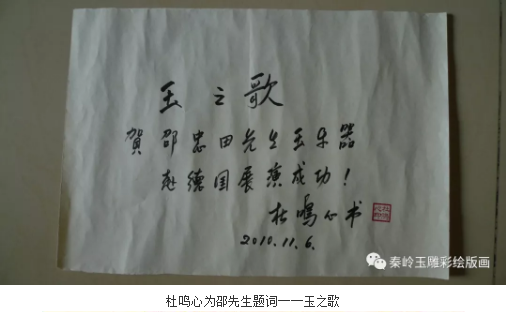 玉之歌
賀邵忠田先生玉乐器
赴德国展演成功！
杜鸣心书
2010.11.6.
秦岭玉雕彩绘版画
杜鸣心为邵先生题词一一玉之歌